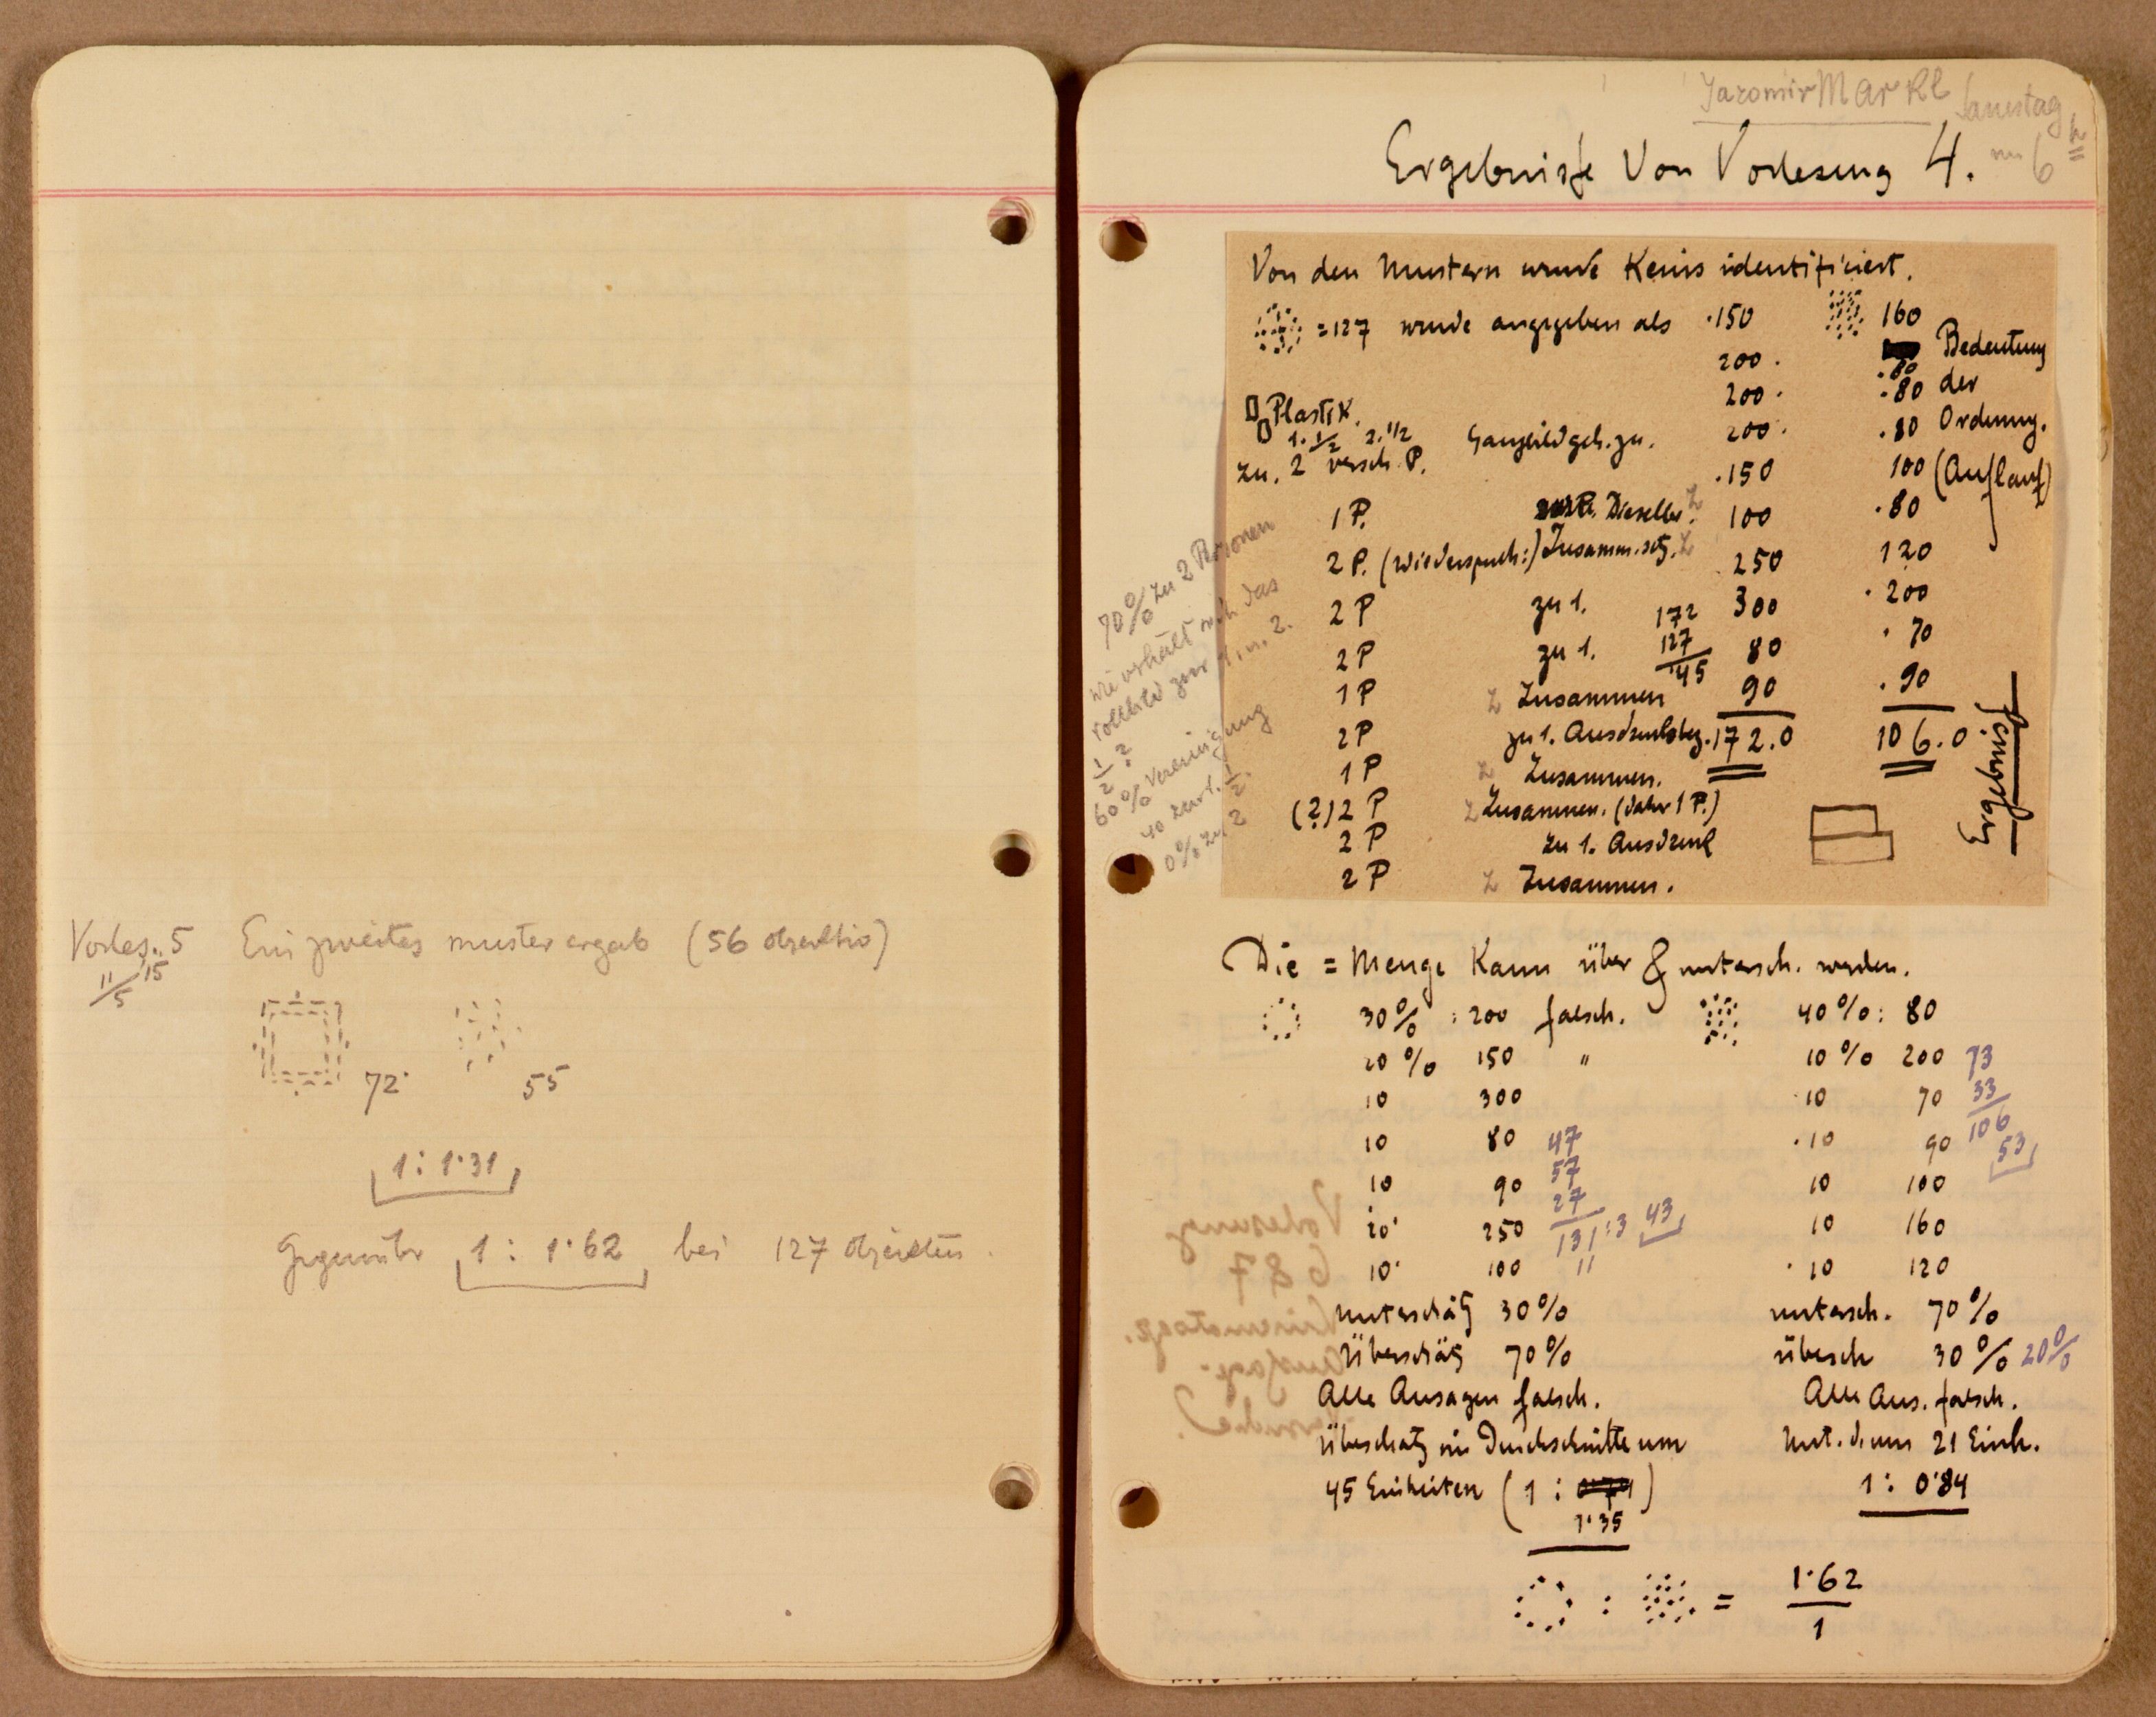 Vorles. 5 Ein zweites muster ergab (56 objektiv)
11/5 15
72 55
1 : 1·31
Gegenüber 1 : 1·62 bei 127 Objekten.
Jaromir Markl Samstag
um 6 h
Ergebnisse Von Vorlesung 4.
Von den Mustern wurde Keins identificiert.
= 127 wurde angegeben als ·150 160
200 · Bedeutung
·80
200 · ·80 der
Plastik.
1. 1/2 2. 1/2 200 · ·80 Ordnung.
zu. 2 versch. P. ·150 100 (Auflauf)
1 P. Dieselbe. Z 100 ·80
2 P. (Wiederspruch:) Zusamm.setz. Z 250 120
2 P zu 1. 172 300 ·200
2 P zu 1. 127 80 ·70
45
1 P Z Zusammen 90 ·90
2 P zu 1. 172.0 106.0
1 P Z Zusammen.
(?) 2 P Z Zusammen. (daher 1 P.)
2 P zu 1. Ausdruck
2 P Z Zusammen.
Ergebnis
70% zu 2 Personen
wie verhält sich das
Vollbild zur 1. u. 2.
1/2 ?
60% Vereinigung
40 zur 1. 1/2.
0% zu 2
Die = Menge Kann über & untersch. werden.
30% : 200 falsch. 40% : 80
20% 150 " 10% 200 73
10 300 10 70 33
106
10 80 47 ·10 90 53
10 90 57 10 100
27
10 250 131:3 43 10 160
10 100 11 10 120
unterschätz 30% untersch. 70%
Überschätz 70% übersch 30% 20%
Alle Aussagen falsch. Alle Aus. falsch.
Überschatz im Durchschnitte um Unt. d. um 21 Einh.
45 Einheiten (1 : 1·35) 1 : 0·84
: = 1·62
1